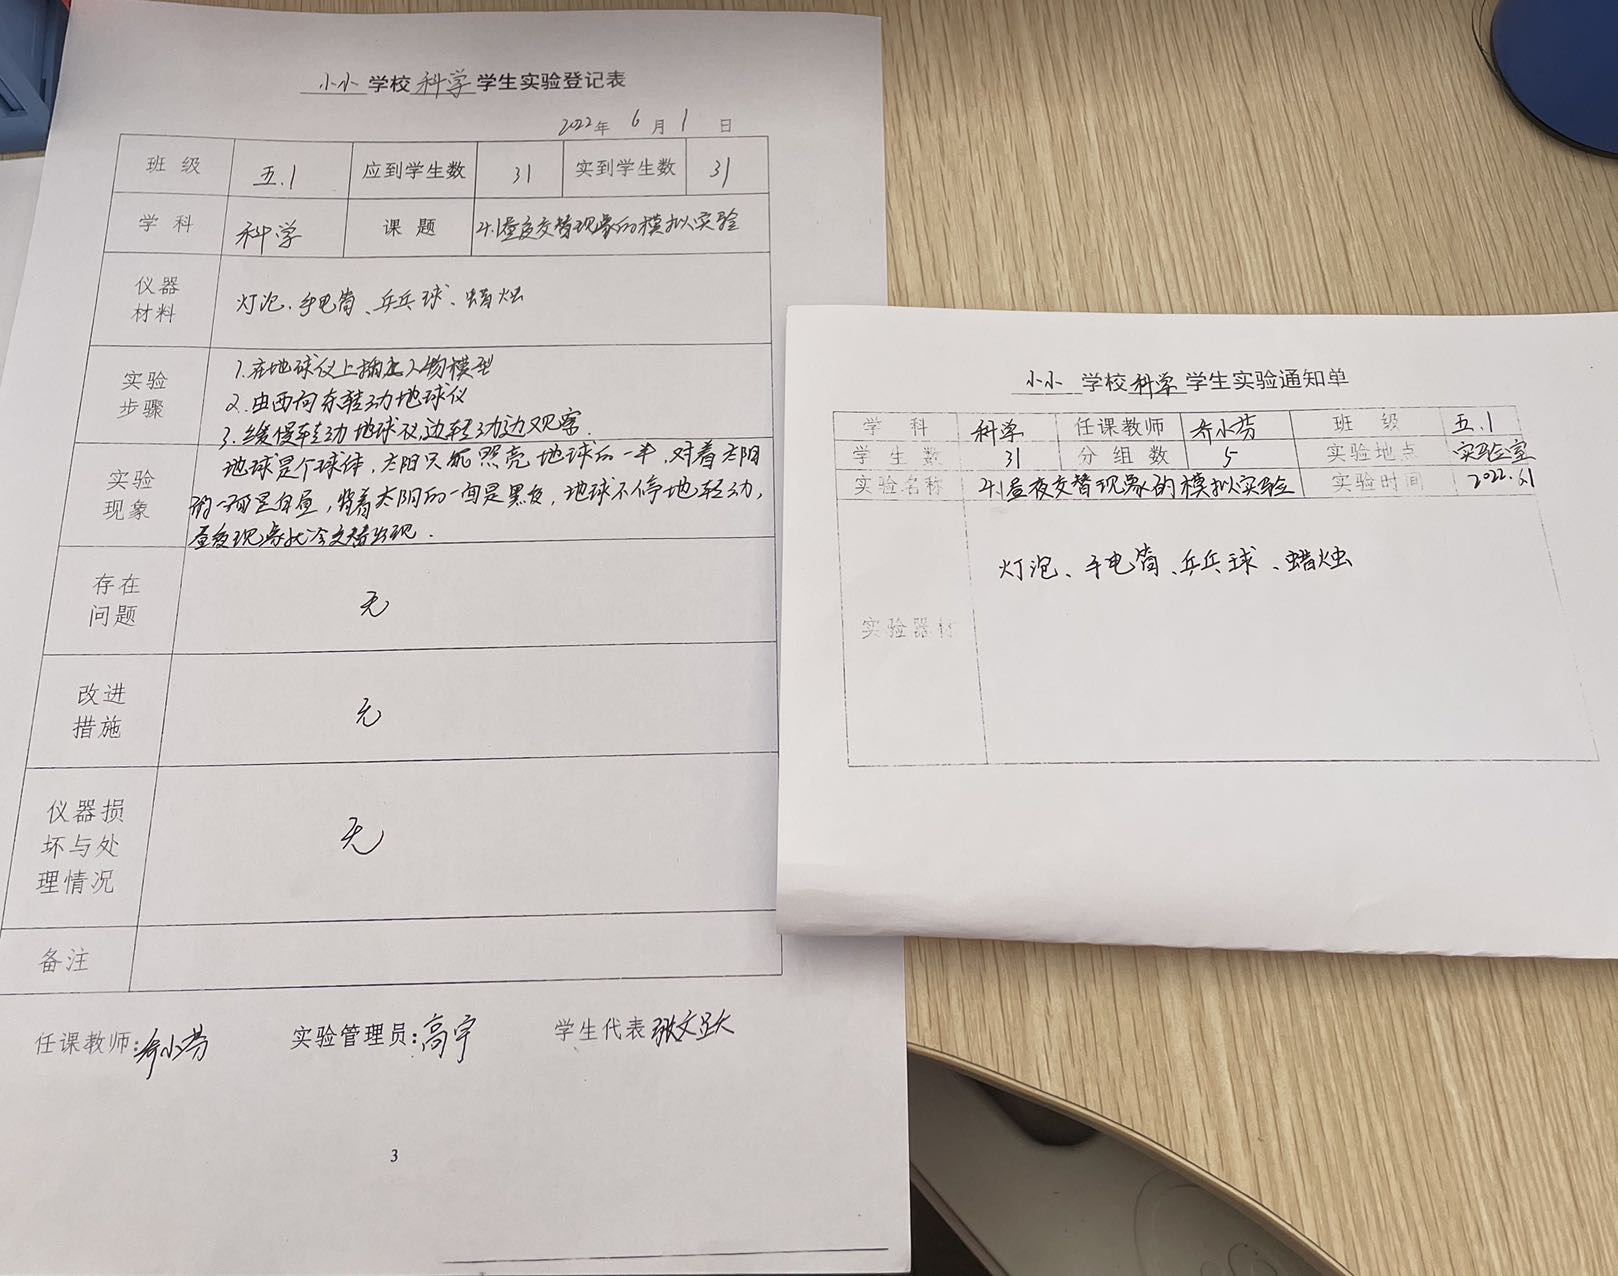 小小 学校 科学 学生实验登记表
2022年 6月1日
班级 五.1 应到学生数 31 实到学生数 31
学科 科学 课题 4.1昼夜交替现象的模拟实验
仪器材料 灯泡、手电筒、乒乓球、蜡烛
实验步骤
1.在地球仪上插上人物模型
2.由西向东转动地球仪
3.缓慢转动地球仪,边转动边观察.
实验现象
地球是个球体,太阳只能照亮地球的一半,对着太阳
的一面是白昼,背着太阳的一面是黑夜,地球不停地转动,
昼夜现象就会交替出现.
存在问题 无
改进措施 无
仪器损坏与处理情况 无
备注
任课教师:乔小芬 实验管理员:高宇 学生代表 张文
3
小小 学校 科学 学生实验通知单
学科 科学 任课教师 乔小芬 班级 五.1
学生数 31 分组数 5 实验地点 实验室
实验名称 4.1昼夜交替现象的模拟实验 实验时间 2022.6.1
实验器材 灯泡、手电筒、乒乓球、蜡烛